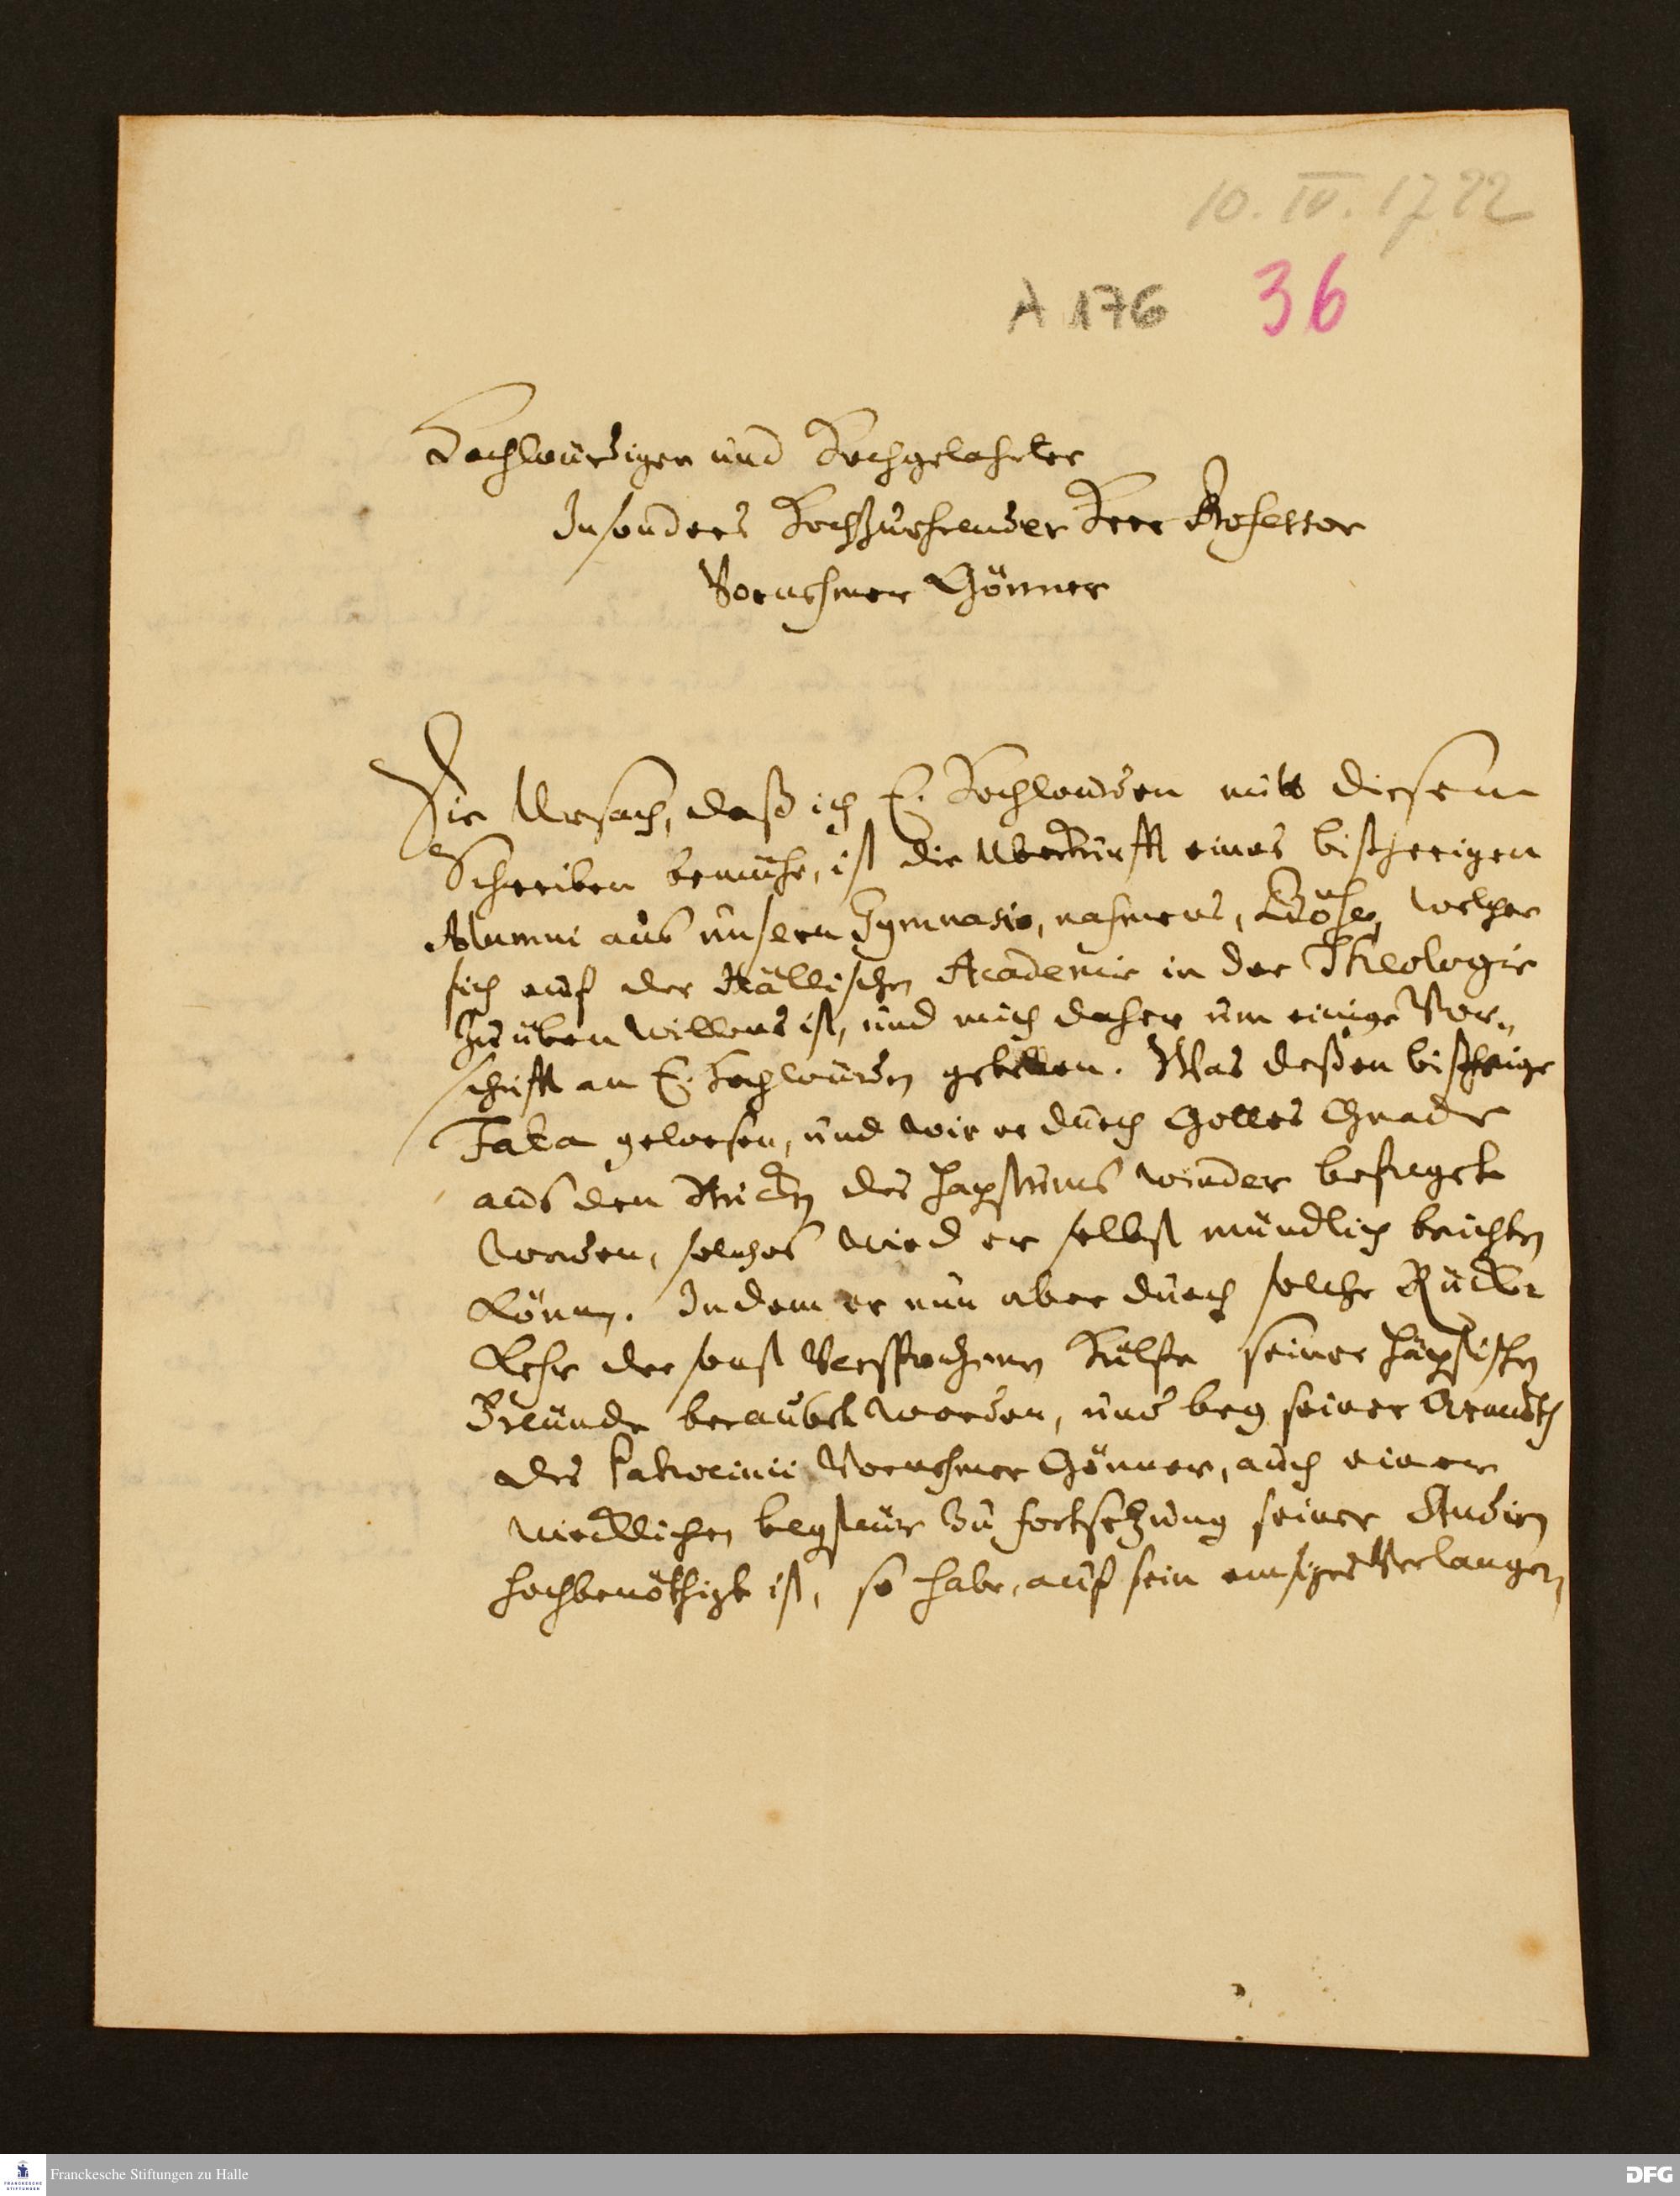 10. IV. 1722
A 176 36
Hochwürdiger und Hochgelahrter
Insonders Hochzuehrender Herr Professor
Vornehmer Gönner
Die Ursach, daß ich E. Hochwürden mitt diesem
Schreiben bemühe, ist die eines bißherigen
Alumni aus unsern Gymnasio, nahmens, welcher
sich auf der Hällischen Academie in der Theologie
zu üben willens ist, und mich daher um einige Vor„
schrifft an E. Hochwürden gebetten. Was deßen bißherige
Fata gewesen, und wie er durch Gottes Gnade
aus den Stricken des Papstums wieder befreyet
worden, solches wird er selbst mündlich berichten
können. Indem er nun aber durch solche Rück
kehr der sonst versprochenen Hülfe seiner Päpstischen
Freünde beraubet worden, und bey seiner Armuth
des Patrocinii Vornehmer Gönner, auch einer
wircklichen beysteür zu fortsetzung seiner Studien
hochbenöthigt ist, so habe, auf sein Verlangen
Franckesche Stiftungen zu Halle
DFG